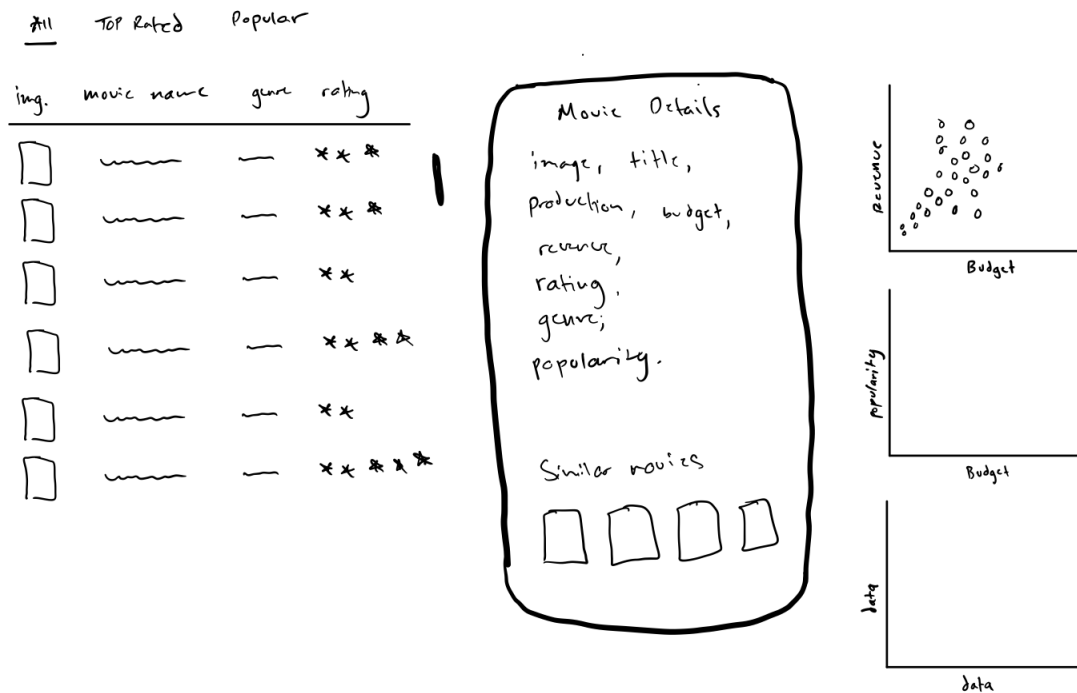 All TOP Rated Popular
img. movie name genre rating
Movie Details
image, title,
production, budget,
revenue,
rating,
genre,
popularity.
Similar movies
Revenue
Budget
popularity
Budget
data
data